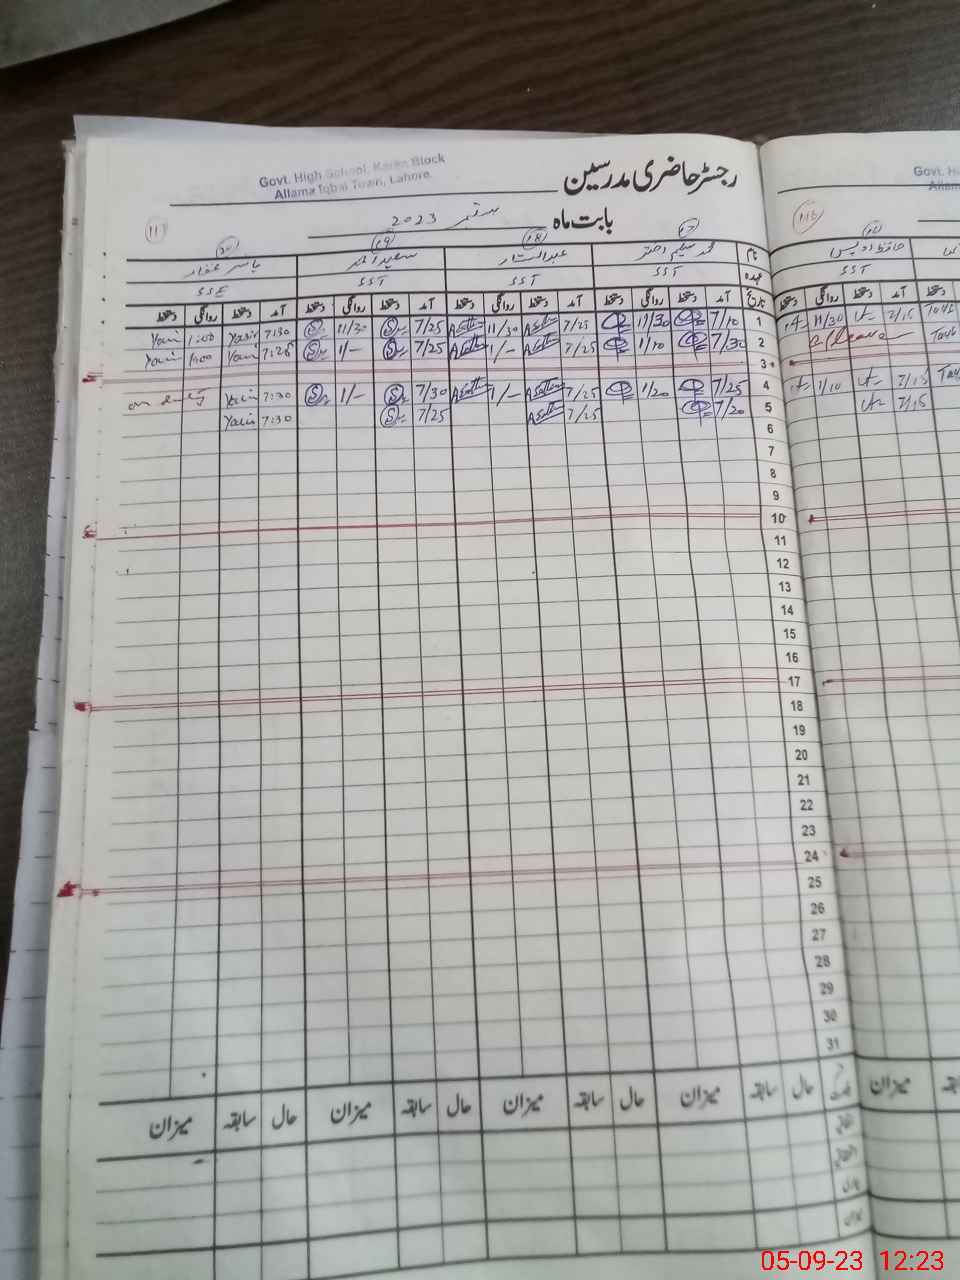 Govt. High School, Karim Block
Allama Iqbal Town, Lahore.
رجسٹر حاضری مدرسین
بابت ماہ ستمبر 2023
نام محمد سلیم اختر عبدالستار سعید احمد یاسر غفار
عہدہ SST SST SST SSE
تاریخ آمد دستخط روانگی دستخط آمد دستخط روانگی دستخط آمد دستخط روانگی دستخط آمد دستخط روانگی دستخط
1 7/10 11/30 7/25 11/30 7/25 11/30 7:30 Yasir 1:00 Yasir
2 7/30 1/10 7/25 1/- 7/25 1/- 7:25 Yasir 1:00 Yasir
3
4 7/25 1/20 7/25 1/- 7/30 1/- 7:30 Yasir on duty
5 7/20 7/25 7/25 7:30 Yasir
6
7
8
9
10
11
12
13
14
15
16
17
18
19
20
21
22
23
24
25
26
27
28
29
30
31
حال سابقہ میزان حال سابقہ میزان حال سابقہ میزان حال سابقہ میزان
حافظ ادریس
SST
دستخط آمد دستخط روانگی دستخط
7/15 11/30
7/15 1/10
7/15
میزان
05-09-23 12:23